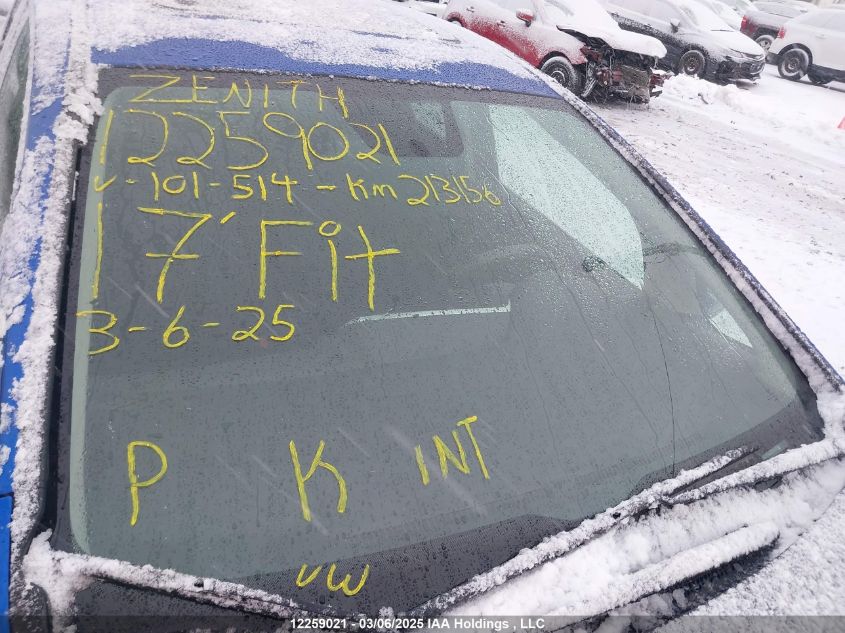 ZENITH
12259021
V-101-514-Km 213156
17' Fit
3-6-25
P K INT
VW
12259021 - 03/06/2025 IAA Holdings , LLC